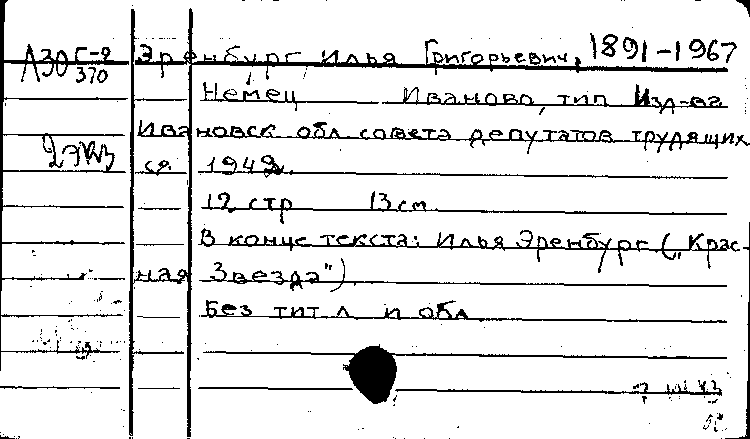 Л30 Г-2/370 Эренбург, Илья Григорьевич, 1891-1967
Немец Иваново, тип Изд-ва
Ивановск обл совета депутатов трудящих
2 экз ся 1942г.
12 стр 13 см
В конце текста: Илья Эренбург („Крас-
ная Звезда")
Без тит л и обл